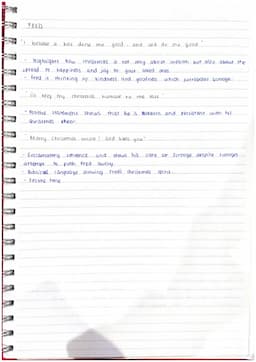 FRED
"I believe it has done me good, and will do me good"
- Highlights how christmas is not only about ... but also about the
spread of happiness and joy to your loved ones
- Fred is ... by kindness and goodness which ... Scrooge.
"I'll keep my christmas humour to the last"
- ... shows that he is ... and persistent with his
christmas cheer.
"Merry Christmas uncle! God save you"
- Exclamatory sentence and shows his care for Scrooge despite Scrooge's
attempt to push Fred away.
- Biblical language showing Fred's christmas spirit.
- Festive tone